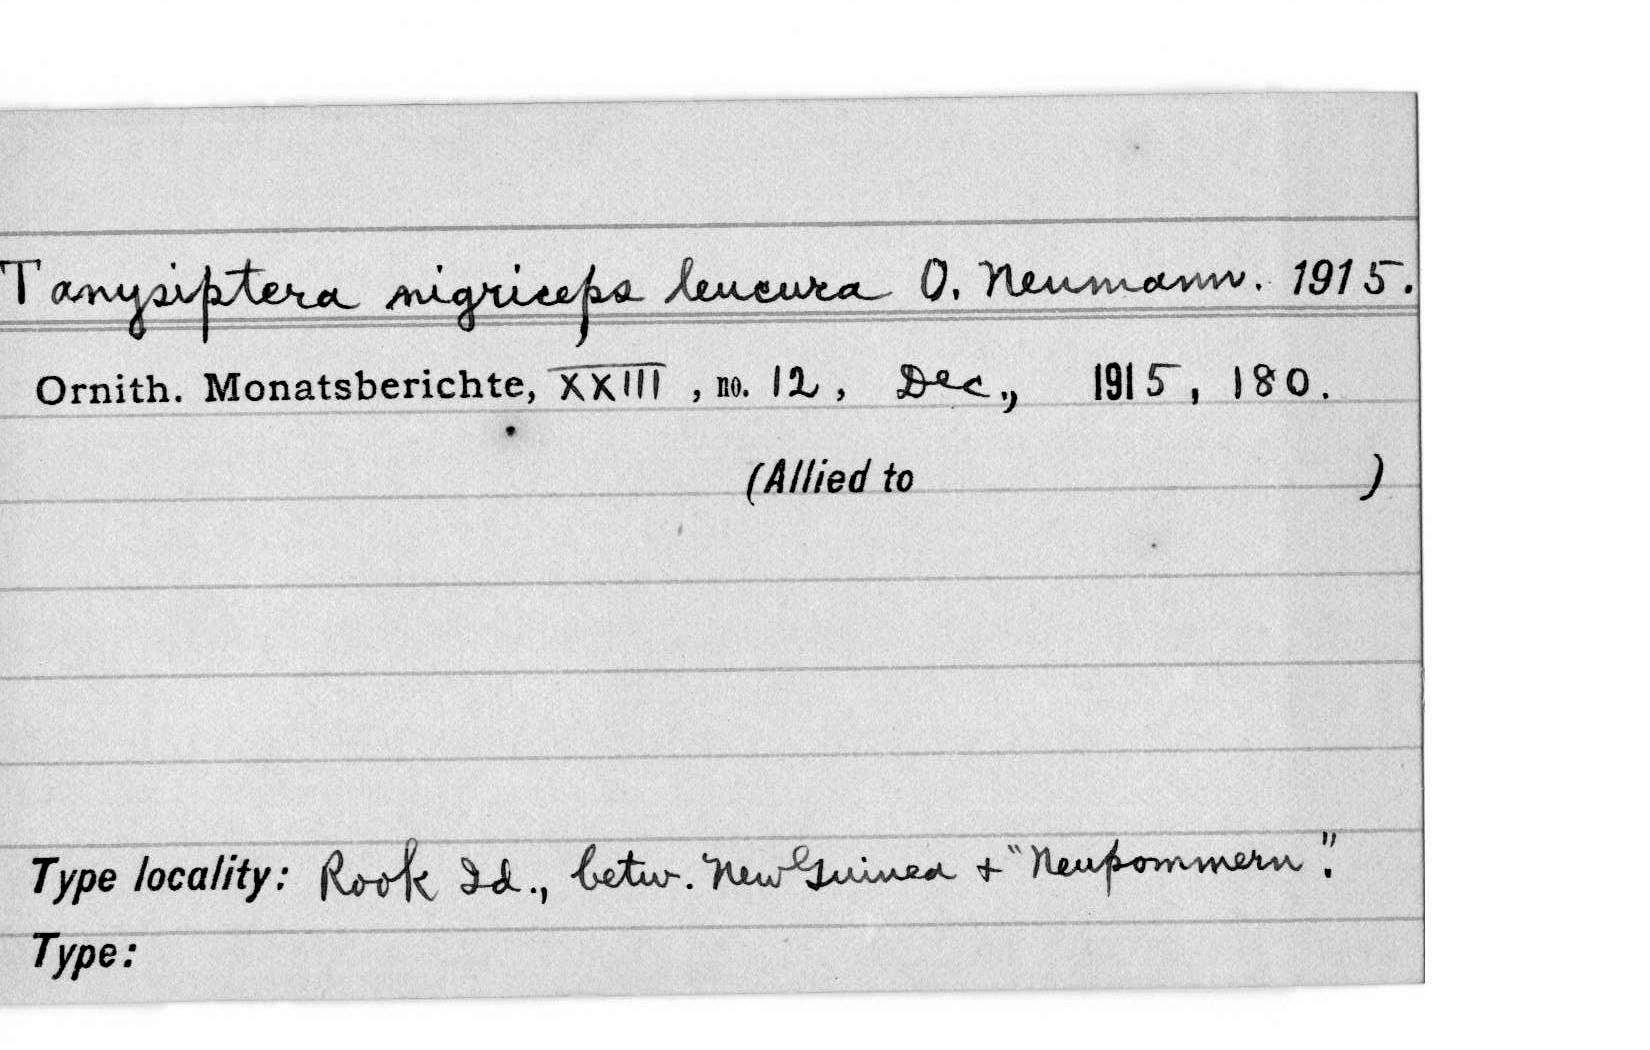 Tanysiptera nigriceps leucura O. Neumann. 1915.
Ornith. Monatsberichte, XXIII, no. 12, Dec., 1915, 180.
(Allied to )
Type locality: Rook Id., betw. New Guinea + "Neupommern".
Type: